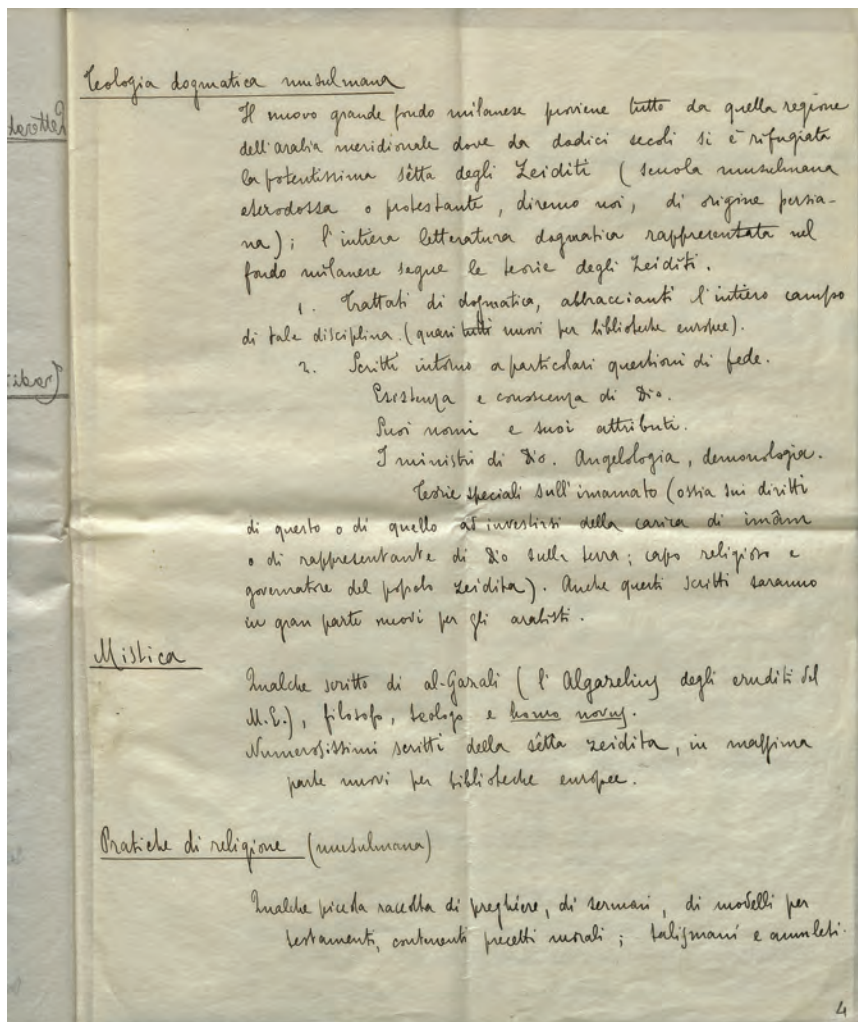 Teologia dogmatica musulmana
Il nuovo grande fondo milanese proviene tutto da quella regione
dell'arabia meridionale dove da dodici secoli si è rifugiata
la potentissima sêtta degli Zeiditi (scuola musulmana
eterodossa o protestante, diremo noi, di origine persia-
na); l'intiera letteratura dogmatica rappresentata nel
fondo milanese segue le teorie degli Zeiditi.
1. Trattati di dogmatica, abbraccianti l'intiero campo
di tale disciplina. (quasi tutti nuovi per biblioteche europee).
2. Scritti intorno a particolari questioni di fede.
Esistenza e conoscenza di Dio.
Suoi nomi e suoi attributi.
I ministri di Dio. Angelologia, demonologia.
Teorie speciali sull'imamato (ossia sui diritti
di questo o di quello ad investirsi della carica di imâm
o di rappresentante di Dio sulla terra; capo religioso e
governatore del popolo zeidita). Anche questi scritti saranno
in gran parte nuovi per gli arabisti.
Mistica
Qualche scritto di al-Gazali (l'Algazelius degli eruditi del
M.E.), filosofo, teologo e homo novus.
Numerosissimi scritti della sêtta zeidita, in massima
parte nuovi per biblioteche europee.
Pratiche di religione (musulmana)
Qualche piccola raccolta di preghiere, di sermoni, di modelli per
testamenti, contenenti precetti morali; talismani e amuleti.
4